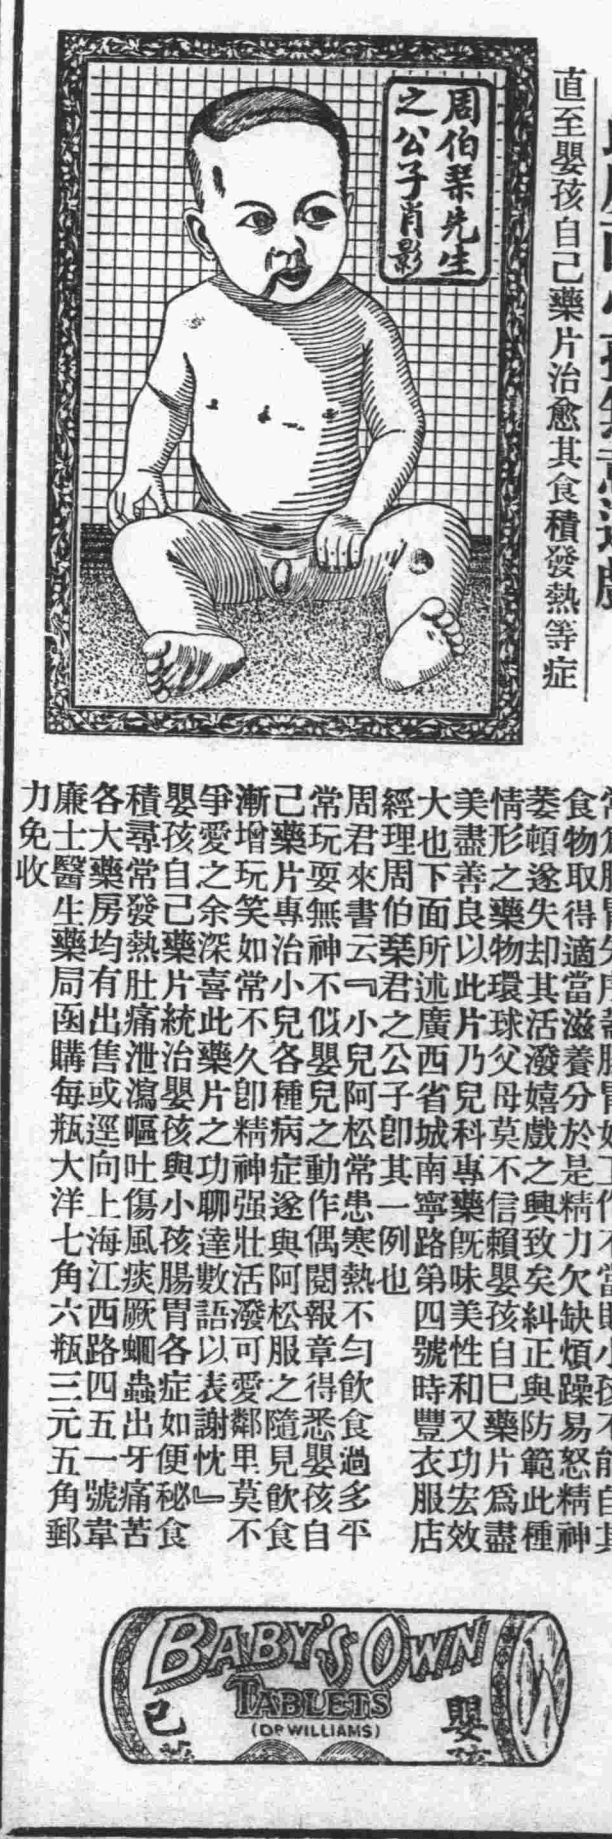 直至嬰孩自己藥片治愈其食積發熱等症
周伯琹先生
之公子肖影
食物取得適當滋養分於是精力欠缺煩躁易怒精神
萎頓遂失却其活潑嬉戲之興致矣糾正與防範此種
情形之藥物環球父母莫不信賴嬰孩自巳藥片爲盡
美盡善良以此片乃兒科專藥旣味美性和又功宏效
大也下面所述廣西省城南寧路第四號時豐衣服店
經理周伯琹君之公子卽其一例也
周君來書云『小兒阿松常患寒熱不勻飲食過多平
常玩耍無神不似嬰兒之動作偶閱報章得悉嬰孩自
己藥片專治小兒各種病症遂與阿松服之隨見飲食
漸增玩笑如常不久卽精神强壯活潑可愛鄰里莫不
爭愛之余深喜此藥片之功聊達數語以表謝忱』
嬰孩自己藥片統治嬰孩與小孩腸胃各症如便秘食
積尋常發熱肚痛泄瀉嘔吐傷風痰厥蛔蟲出牙痛苦
各大藥房均有出售或逕向上海江西路四五一號韋
廉士醫生藥局函購每瓶大洋七角六瓶三元五角郵
力免收
BABY'S OWN
TABLETS
(DR WILLIAMS)
嬰孩
己